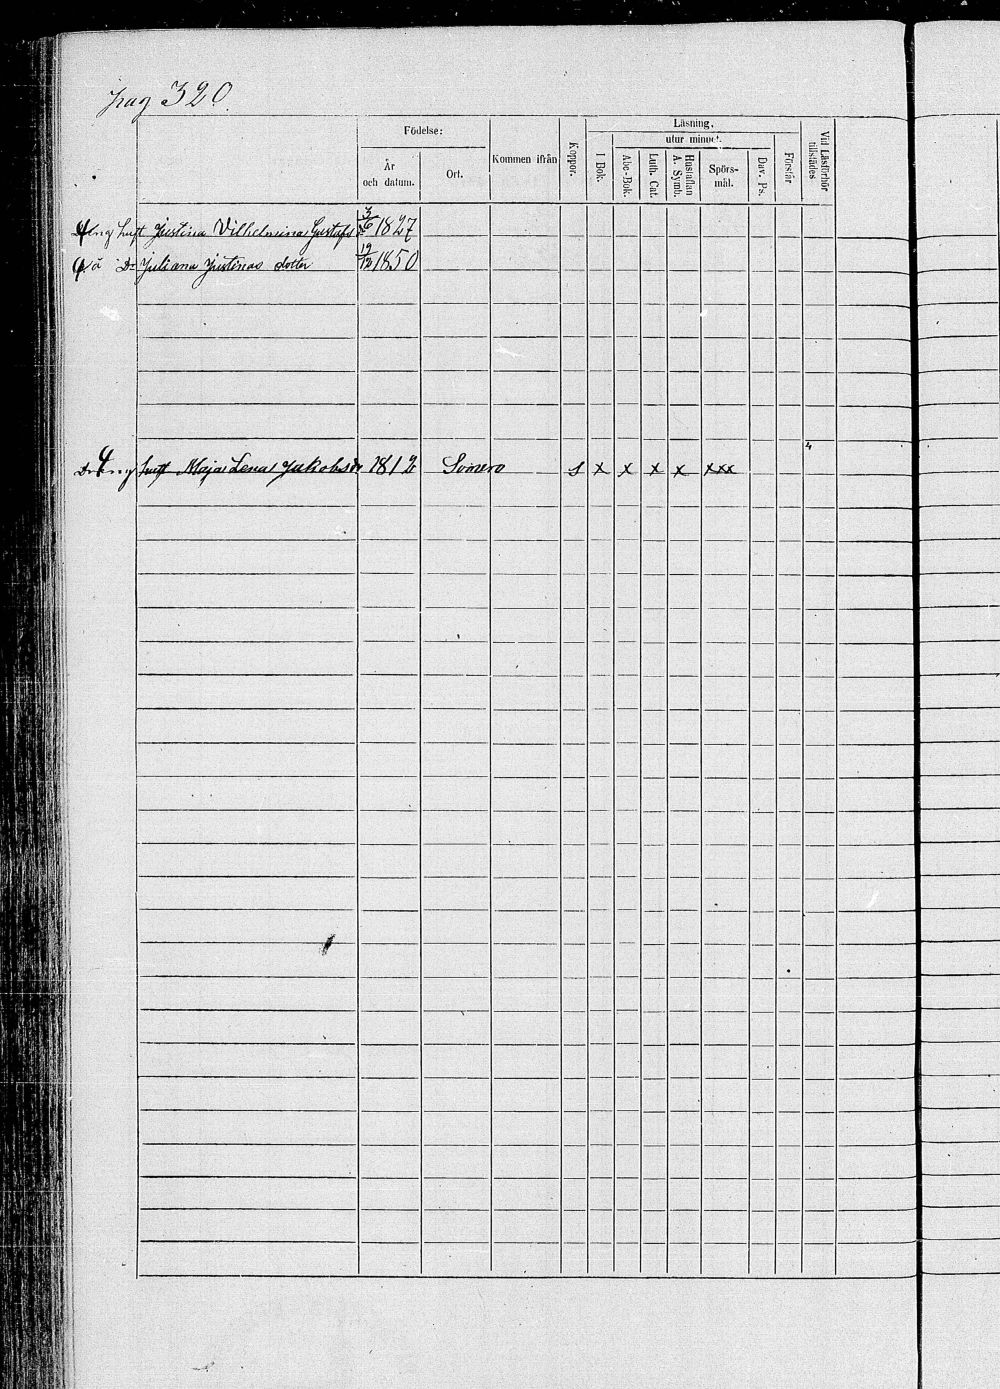 pag 320.
Födelse:
År och datum.
Ort.
Kommen ifrån
Koppor.
Läsning.
I Bok.
utur minnet.
Abc-Bok.
Luth. Cat.
Hustaflan A. Symb.
Spörs-mål.
Dav. Ps.
Förstår
Vid Läsförhör tillstädes
hust Justina Vilhelmina Gustafs 3/6 1827
Dr Juliana Justinas dotter 19/12 1850
hust Maja Lena Jakobsdr 1812 Somero s x x x x xxx 4